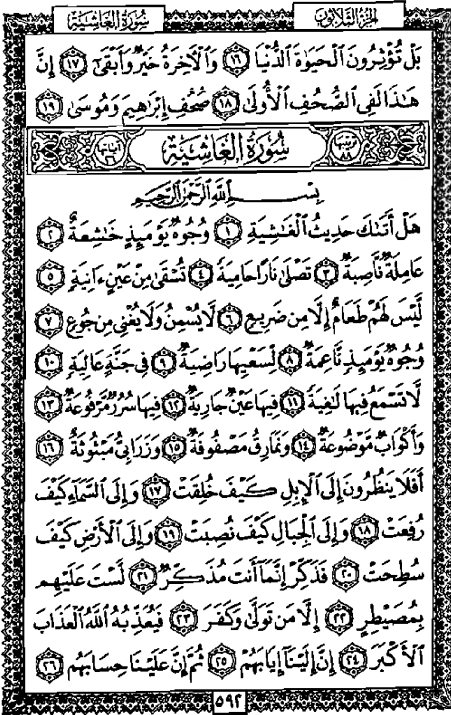 الجزء الثلاثون
سورة الغاشية
بَلْ تُؤْثِرُونَ ٱلْحَيَوٰةَ ٱلدُّنْيَا ١٦ وَٱلْءَاخِرَةُ خَيْرٌ وَأَبْقَىٰٓ ١٧ إِنَّ
هَـٰذَا لَفِى ٱلصُّحُفِ ٱلْأُولَىٰ ١٨ صُحُفِ إِبْرَٰهِيمَ وَمُوسَىٰ ١٩
ترتيبها ٨٨ سُورَةُ ٱلْغَاشِيَةِ آياتها ٢٦
بِسْمِ ٱللَّهِ ٱلرَّحْمَـٰنِ ٱلرَّحِيمِ
هَلْ أَتَىٰكَ حَدِيثُ ٱلْغَـٰشِيَةِ ١ وُجُوهٌ يَوْمَئِذٍ خَـٰشِعَةٌ ٢
عَامِلَةٌ نَّاصِبَةٌ ٣ تَصْلَىٰ نَارًا حَامِيَةً ٤ تُسْقَىٰ مِنْ عَيْنٍ ءَانِيَةٍ ٥
لَّيْسَ لَهُمْ طَعَامٌ إِلَّا مِن ضَرِيعٍ ٦ لَّا يُسْمِنُ وَلَا يُغْنِى مِن جُوعٍ ٧
وُجُوهٌ يَوْمَئِذٍ نَّاعِمَةٌ ٨ لِّسَعْيِهَا رَاضِيَةٌ ٩ فِى جَنَّةٍ عَالِيَةٍ ١٠
لَّا تَسْمَعُ فِيهَا لَـٰغِيَةً ١١ فِيهَا عَيْنٌ جَارِيَةٌ ١٢ فِيهَا سُرُرٌ مَّرْفُوعَةٌ ١٣
وَأَكْوَابٌ مَّوْضُوعَةٌ ١٤ وَنَمَارِقُ مَصْفُوفَةٌ ١٥ وَزَرَابِىُّ مَبْثُوثَةٌ ١٦
أَفَلَا يَنظُرُونَ إِلَى ٱلْإِبِلِ كَيْفَ خُلِقَتْ ١٧ وَإِلَى ٱلسَّمَآءِ كَيْفَ
رُفِعَتْ ١٨ وَإِلَى ٱلْجِبَالِ كَيْفَ نُصِبَتْ ١٩ وَإِلَى ٱلْأَرْضِ كَيْفَ
سُطِحَتْ ٢٠ فَذَكِّرْ إِنَّمَآ أَنتَ مُذَكِّرٌ ٢١ لَّسْتَ عَلَيْهِم
بِمُصَيْطِرٍ ٢٢ إِلَّا مَن تَوَلَّىٰ وَكَفَرَ ٢٣ فَيُعَذِّبُهُ ٱللَّهُ ٱلْعَذَابَ
ٱلْأَكْبَرَ ٢٤ إِنَّ إِلَيْنَآ إِيَابَهُمْ ٢٥ ثُمَّ إِنَّ عَلَيْنَا حِسَابَهُم ٢٦
٥٩٢